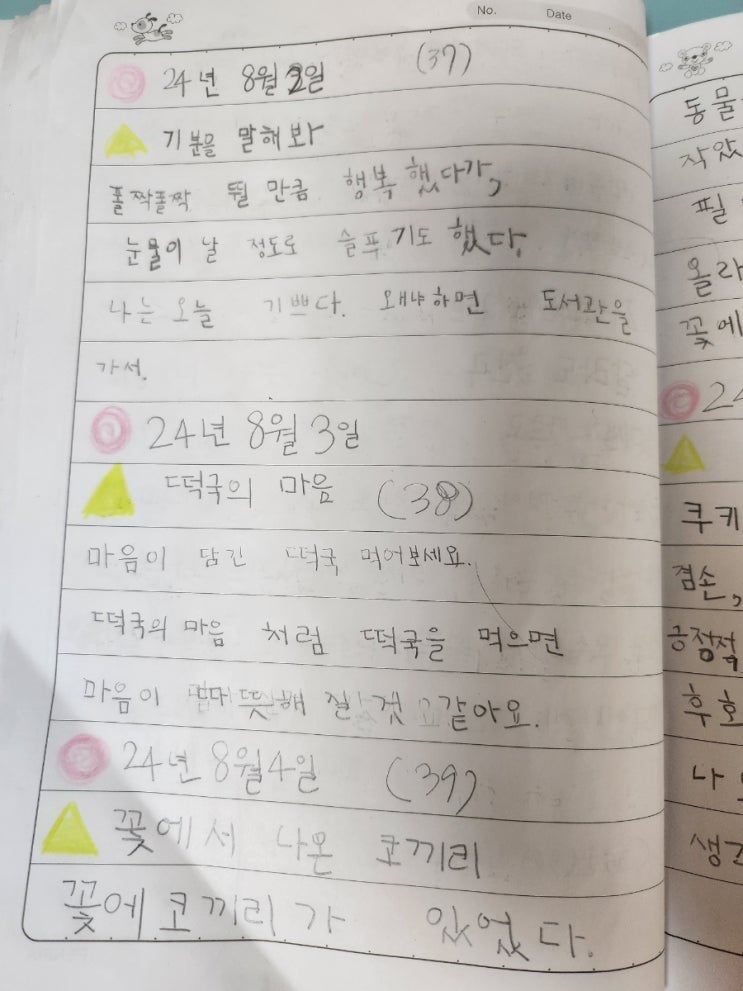 No. Date
24년 8월 2일 (37)
기분을 말해봐
폴짝폴짝 뛸 만큼 행복했다가,
눈물이 날 정도로 슬프기도 했다.
나는 오늘 기쁘다. 왜냐하면 도서관을
가서.
24년 8월 3일
떡국의 마음 (38)
마음이 담긴 떡국 먹어보세요.
떡국의 마음 처럼 떡국을 먹으면
마음이 따뜻해 질 것 같아요.
24년 8월 4일 (39)
꽃에서 나온 코끼리
꽃에 코끼리가 있었다.
동물
작았
필
올라
꽃에
24
쿠키
겸손,
긍정적
후회
나